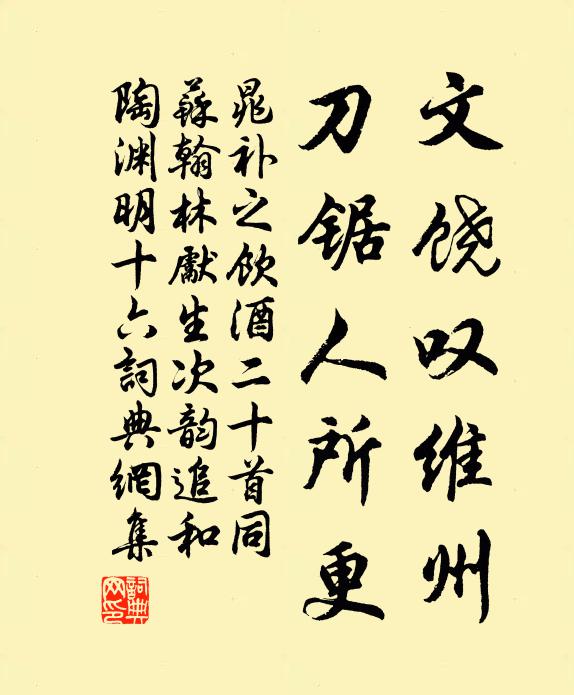 文饶叹维州
刀锯人所更
晁补之饮酒二十首同
蘇翰林獻生次韵追和
陶渊明十六詞典網集
詞典